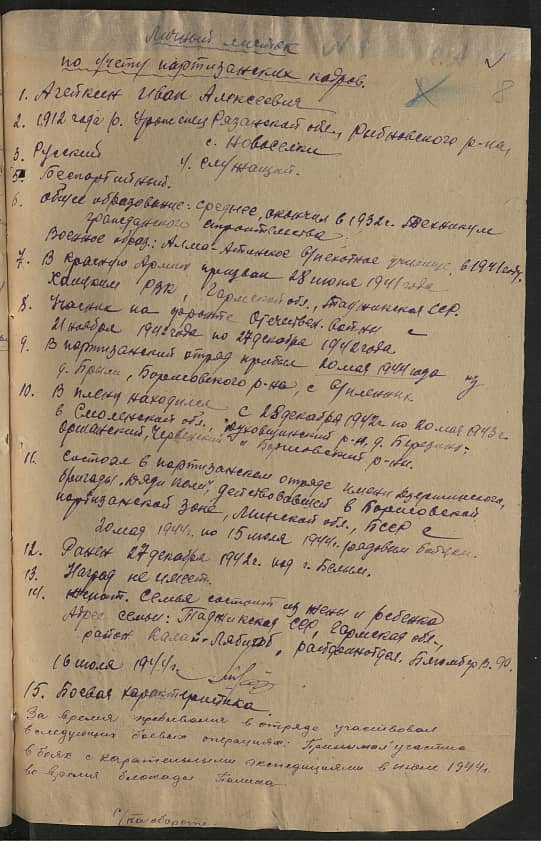 Личный листок
по учету партизанских кадров.
8
1. Агейкин Иван Алексеевич
2. 1912 года р. Уроженец Рязанской обл, Рыбновского р-на,
с. Новоселки
3. Русский 4. служащий.
5. Беспартийный.
6. Общее образование: среднее, окончил в 1932г. Техникум
гражданского строительства
Военное образ.: Алма-Атинское пехотное училище, в 1941году.
7. В Красную Армию призван 28 июня 1941 года
РВК, Гармской обл., Таджикская ССР.
8. Участник на фронте Отечествен. войны с
21 ноября 1942года по 27 декабря 1942года.
9. В партизанский отряд прибыл 20 мая 1944 года из
д. Борисовского р-на, с плена
10. В плену находился с 28 декабря 1942г по 20 мая 1943г
в Смоленской обл., Духовщинский р-н, д.
Оршанский, Червенский и Борисовский р-ны.
11. Состоял в партизанском отряде имени Дзержинского,
бригады "Дяди Коли", действовавшей в Борисовской
партизанской зоне, Минской обл., БССР с
20 мая 1944г. по 15 июля 1944г. рядовым бойцом.
12. Ранен 27 декабря 1942г. под г. Белым.
13. Наград не имеет.
14. Женат. Семья состоит из жены и ребенка
Адрес семьи: Таджикская ССР, Гармская обл.,
район Калай-Лябиоб,
16 июля 1944г.
15. Боевая характеристика.
За время пребывания в отряде участвовал
в следующих боевых операциях: Принимал участие
в боях с карательными экспедициями в июне 1944г.
во время блокады Палика
на обороте